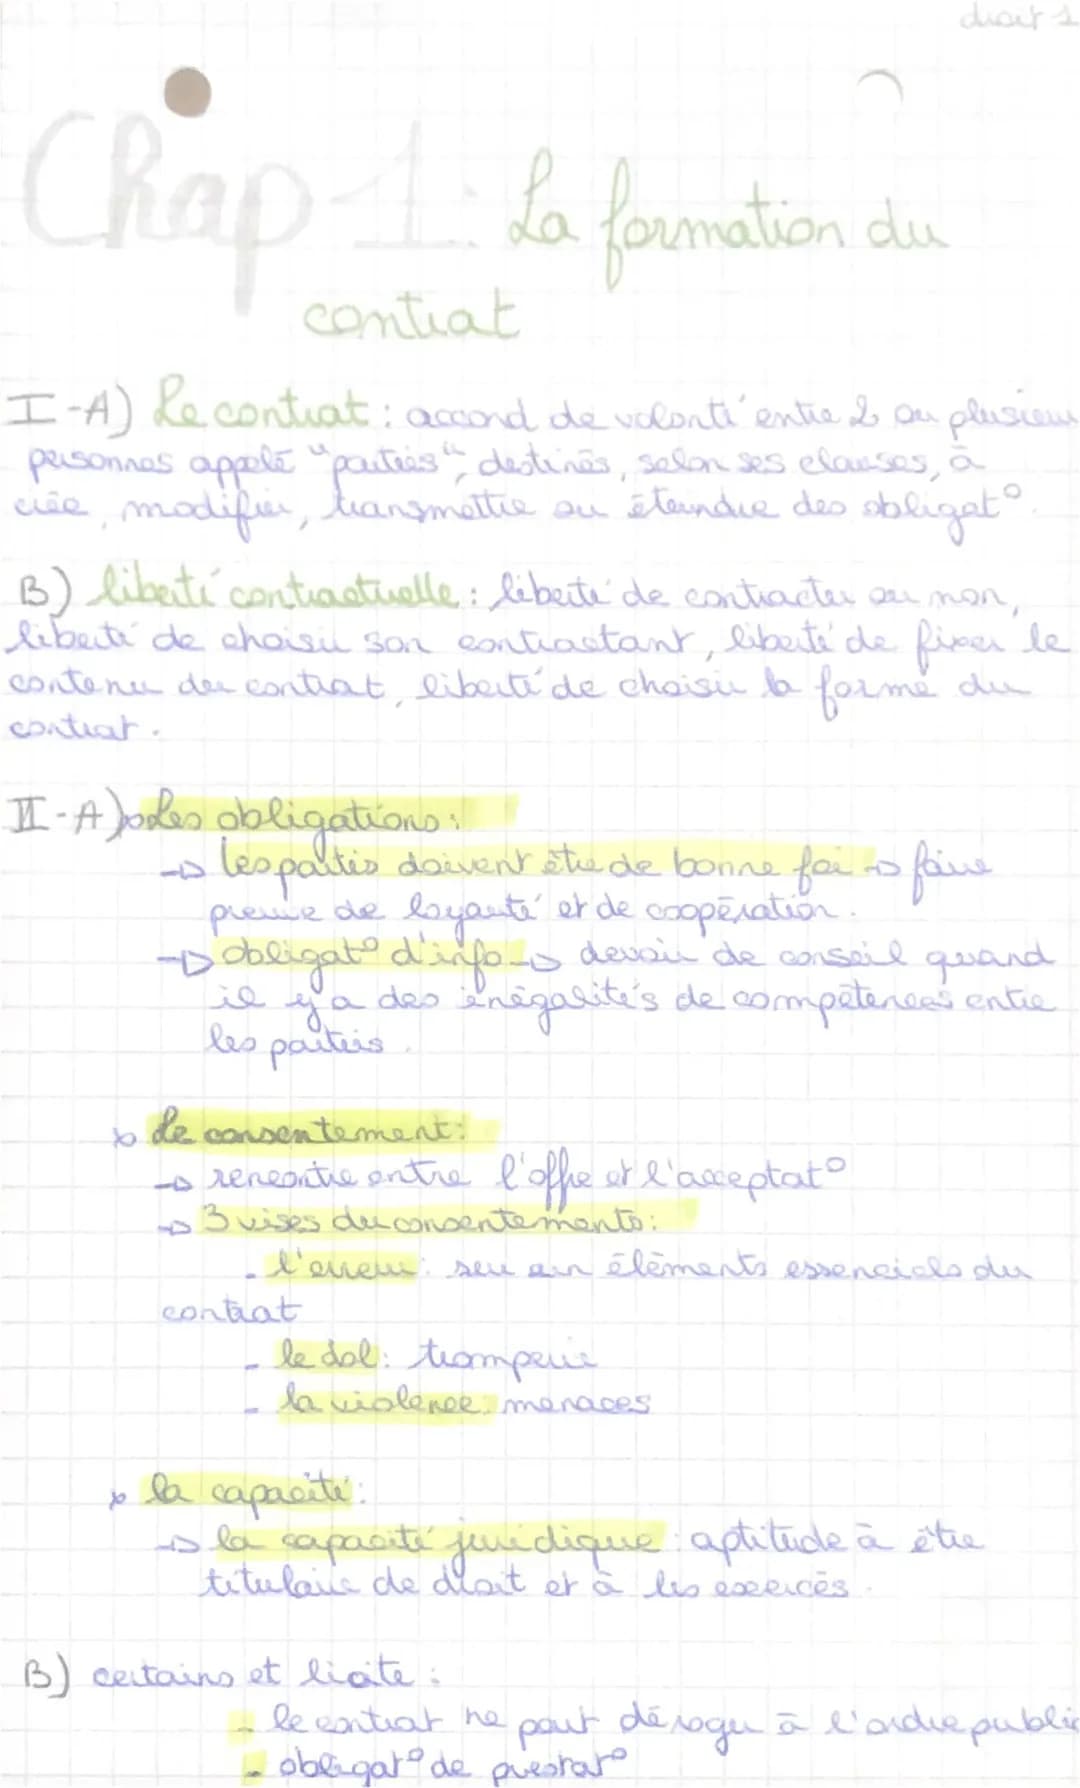 droit 1
Chap 1: La formation du
contrat
I-A) Le contrat : accord de volonté entre 2 ou plusieurs
personnes appelé "parties", destinés, selon ses clauses, à
crée, modifier, transmettre ou éteindre des obligat°.
B) liberté contractuelle : liberté de contracter ou non,
liberté de choisir son contractant, liberté de fixer le
contenu du contrat, liberté de choisir la forme du
contrat.
II-A) Les obligations :
→ les parties doivent être de bonne foi → faire
preuve de loyauté et de coopération.
→ obligat° d'info → devoir de conseil quand
il y a des inégalités de compétences entre
les parties.
Le consentement :
→ rencontre entre l'offre et l'acceptat°
→ 3 vises du consentements :
- l'erreur : sur un éléments essenciels du
contrat
- le dol : tromperie
- la violence : menaces
la capacité :
→ la capacité juridique : aptitude à être
titulaire de droit et à les exercés.
B) certains et licite :
- le contrat ne peut déroger à l'ordre public
- obligat° de prestat°